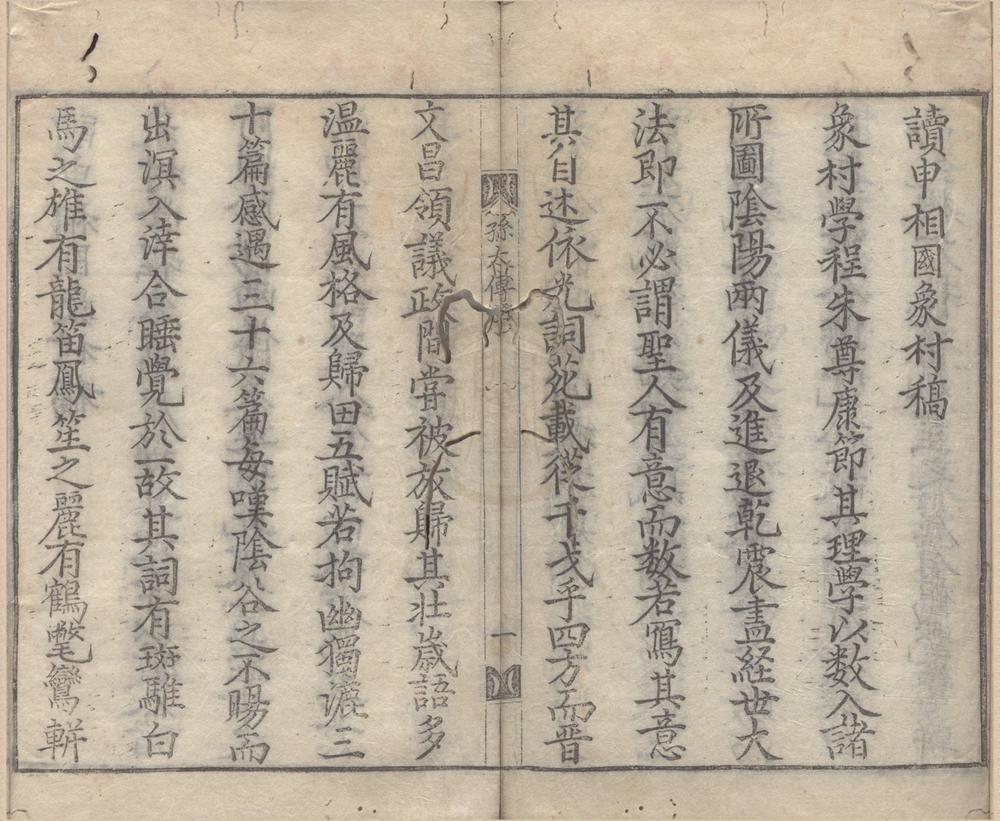 讀申相國象村稿
象村學程朱尊康節其理學以数入諸
所圖陰陽兩儀及進退乾震畫経世大
法即不必謂聖人有意而数若寫其意
其自述依光詞苑載從干戈乎四方而晋
孫太傅
一
文昌領議政間甞被放歸其壮歲語多
温麗有風格及歸田五賦若拘幽獨漉三
十篇感遇三十六篇每嘆陰谷之不暘而
出溟入涬合睡覺於一故其詞有斑騅白
馬之雄有龍笛鳳笙之麗有鶴氅鸞軿